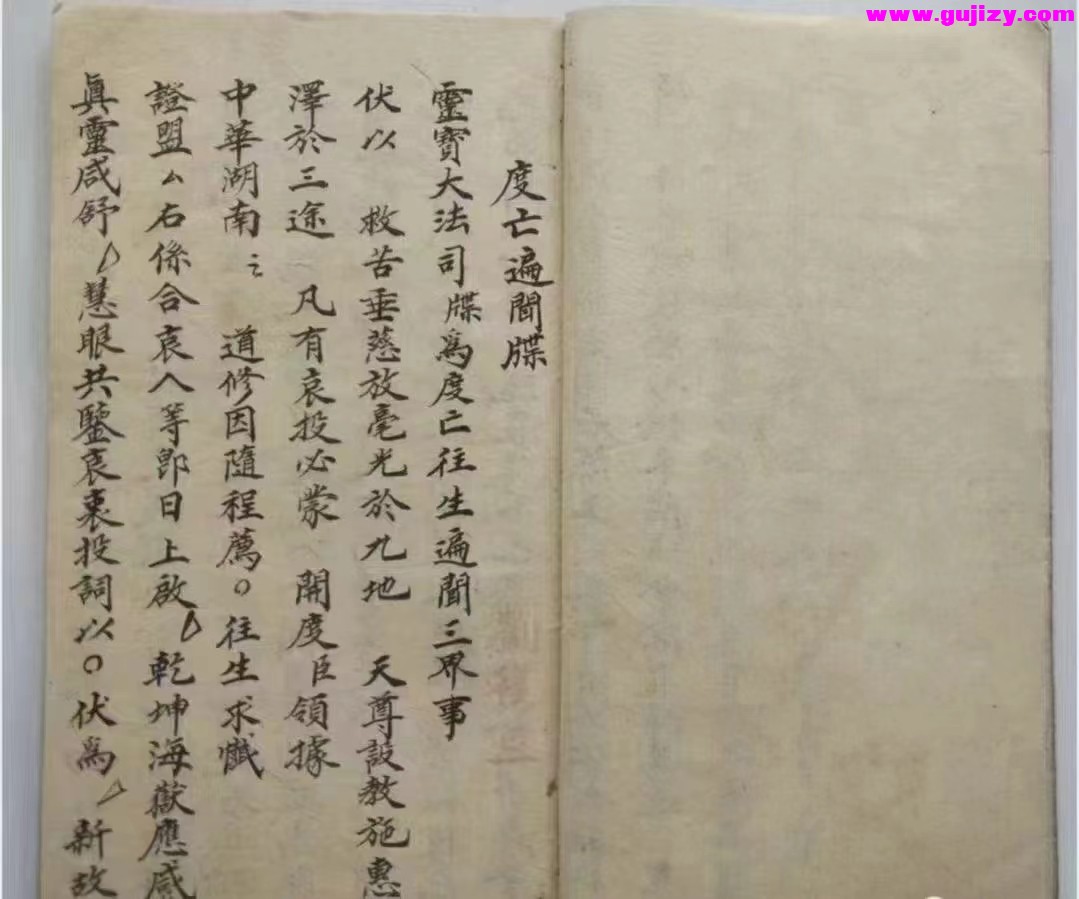 www.gujizy.com
度亡遍聞牒
靈寶大法司牒為度亡往生遍聞三界事
伏以 救苦垂慈放毫光於九地 天尊設教施惠
澤於三途 凡有哀投必蒙 開度臣領據
中華湖南 道修因隨程薦○往生求懺
證盟厶右係合哀人等即日上啟 乾坤海嶽應感
真靈咸舒 慧眼共鑒哀衷投詞以○伏為 新故